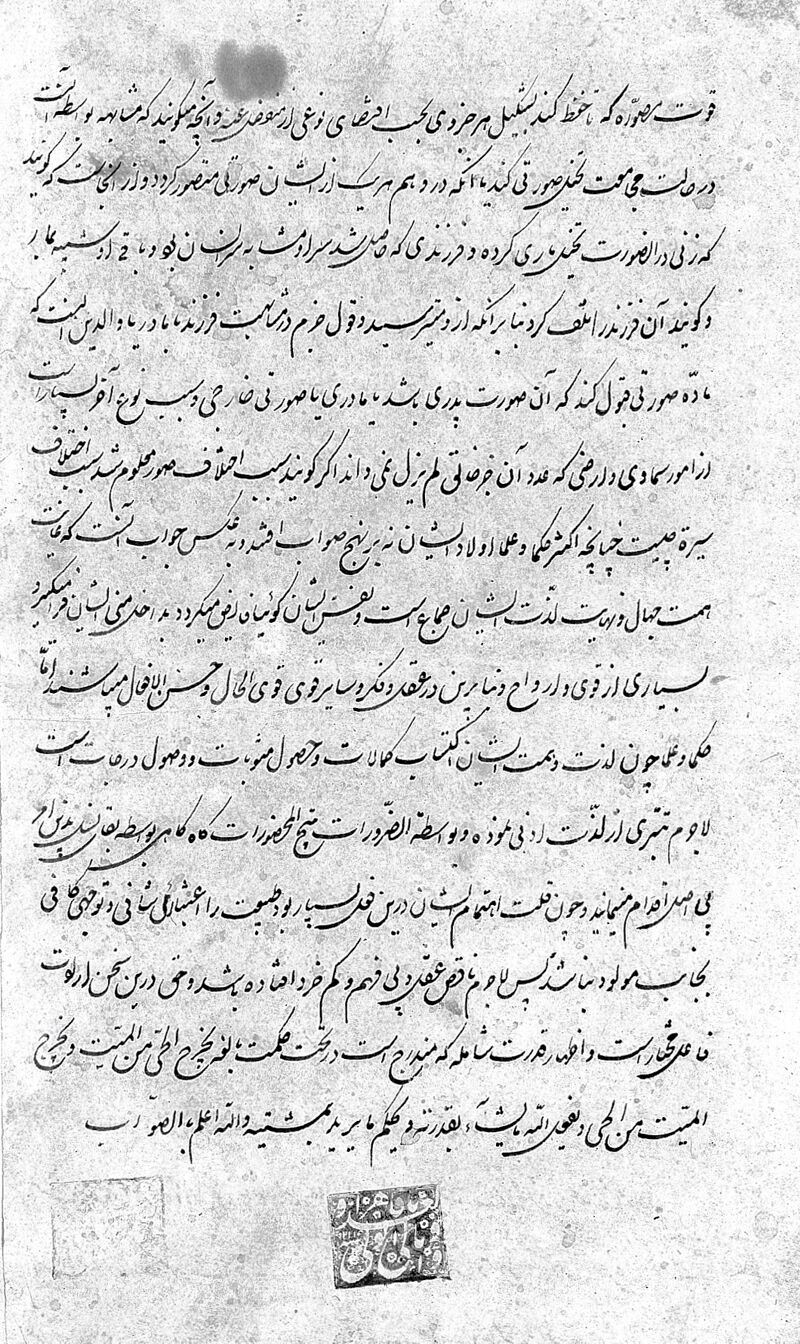 قوت مصوّره که تا حفظ کند بتشکیل هر جزوی بحسب اقتضای نوعی از منفصل عنه و آنچه میگویند که مشابهه بواسطه آنست
در حالت مجامعت تخیل صورتی کند یا آنکه در وهم هر یک از ایشان صورتی متصور گردد و از آنجاست که گویند
که زنی در آن صورت تخیل ماری کرده و فرزندی که حاصل شد سر او مشابه سر انسان بود و باقی او شبیه بمار
و گویند آن فرزند را تلف کرد بنا بر آنکه از و میترسید و قول جزم در مشابهت فرزند با مادر یا والدین اینست که
ماده صورتی قبول کند که آن صورت پدری باشد یا مادری یا صورتی خارجی و سبب نوع آخر بسیار است
از امور سماوی و ارضی که عدد آن جز خالق لم یزل نمی داند اگر گویند سبب اختلاف صور معلوم شد سبب اختلاف
سیرة چیست چنانچه اکثر حکما و علما اولاد ایشان نه بر نهج صواب افتند و به عکس جواب آنست که غایت
همت جهال و نهایت لذّت ایشان جماع است و نفس ایشان گوئیا ... میگردد بداخل منی ایشان فرا میگیرد
بسیاری از قوی و ارواح و بنابرین در عقل و فکر و سایر قوی قوی الحال و حسن الافعال میباشند امّا
حکما و علما چون لذت و همت ایشان اکتساب کمالات و حصول مثوبات و وصول درجات است
لاجرم تبرّی از لذّت ادنی نموده و بواسطه الضّرورات تبیح المحضورات گاه گاهی بواسطه بقای نسل بدین امر
بی اصل اقدام مینمایند و چون قلت اهتمام ایشان درین فعل بسیار بود طبیعت را اعتنائی شافی و توجهی کافی
بجانب مولود نباشد پس لاجرم ناقص عقل و بی فهم و کم خرد افتاده باشد و حق درین سخن ارادت
فاعل مختار است و اظهار قدرت شامله که مندرج است در تحت حکمت بالغه یخرج الحیّ من المیّت و یخرج
المیّت من الحی و یفعل اللّه ما یشآء بقدرته و یحکم ما یرید بمشیته واللّه اعلم بالصّواب